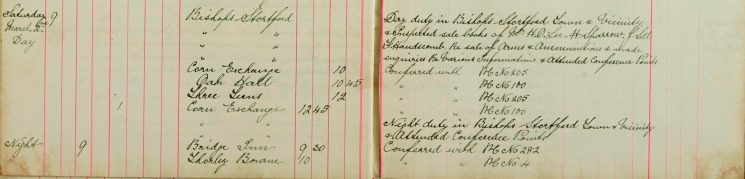 Saturday 9 Bishops Stortford
March 2nd "
Day "
"
Corn Exchange 10
Oak Hall 10 45
Three Tuns 12
Corn Exchange 12 45
"
"
Night 9 Bridge Inn 9 30
Thorley Bourne 10
Day duty in Bishops Stortford Town & Vicinity
& Inspected sale books of Mr H. O. Lee. H. Sparrow.
F Handscomb. Re sale of Arms & Ammunitions & made
enquiries Re Various Informations & Attended Conference Points
Conferred with PC No 205
" " PC No 100
" " PC No 205
" " PC No 100
Night duty in Bishops Stortford Town & Vicinity
& Attended Conference Points
Conferred with PC No 282
" " PC No 4